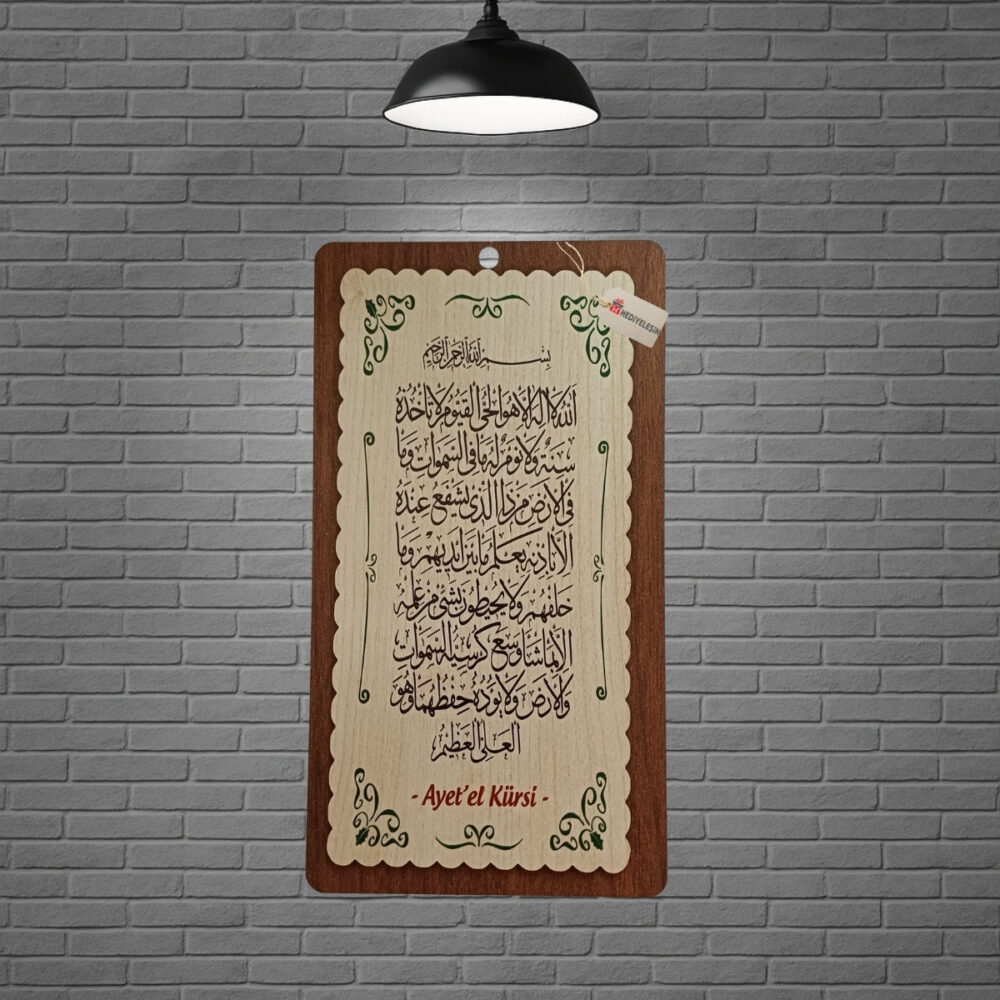 HEDİYELEŞİN
بِسْمِ اللهِ الرَّحْمٰنِ الرَّحِيمِ
اَللهُ لَا اِلٰهَ اِلَّا هُوَ الْحَيُّ الْقَيُّومُ لَا تَأْخُذُهُ
سِنَةٌ وَلَا نَوْمٌ لَهُ مَا فِي السَّمٰوَاتِ وَمَا
فِي الْاَرْضِ مَنْ ذَا الَّذِي يَشْفَعُ عِنْدَهُ
اِلَّا بِاِذْنِهِ يَعْلَمُ مَا بَيْنَ اَيْدِيهِمْ وَمَا
خَلْفَهُمْ وَلَا يُحِيطُونَ بِشَيْءٍ مِنْ عِلْمِهِ
اِلَّا بِمَا شَاءَ وَسِعَ كُرْسِيُّهُ السَّمٰوَاتِ
وَالْاَرْضَ وَلَا يَؤُدُهُ حِفْظُهُمَا وَهُوَ
الْعَلِيُّ الْعَظِيمُ
- Ayet'el Kürsi -